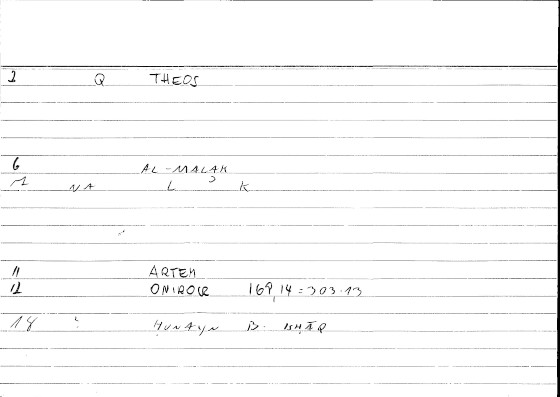 1 Q THEOS
6 AL-MALAK
NA L ʾ K
11 ARTEM
12 ONIROCR 169,14 = 303.13
18 : ḤUNAYN B. ISḤĀQ